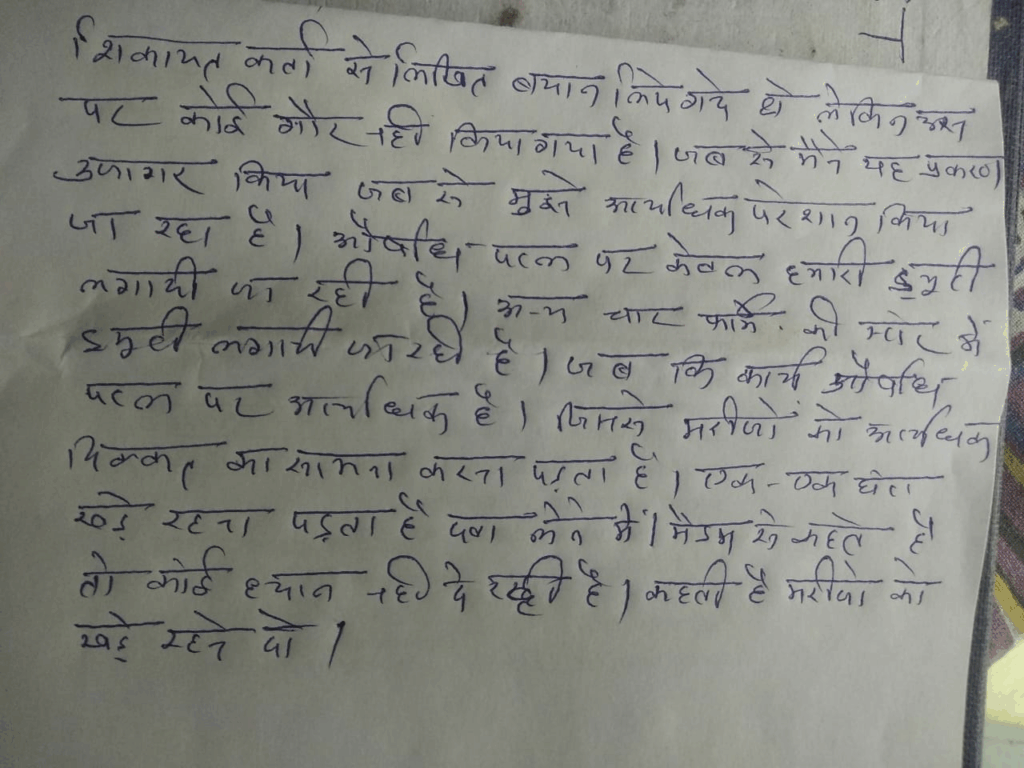 शिकायत कर्ता से लिखित बयान लिये गये थे लेकिन उस
पर कोई गौर नही किया गया है। जब से मैने यह प्रकरण
उजागर किया जब से मुझे अत्यधिक परेशान किया
जा रहा है। औषधि पटल पर केवल हमारी ड्युटी
लगायी जा रही है। अन्य चार फार्मे. की स्टोर में
ड्युटी लगायी जा रही है। जब कि कार्य औषधि
पटल पर अत्यधिक है। जिससे मरीजों को अत्यधिक
दिक्कत का सामना करना पड़ता है। एक-एक घंटा
खड़े रहना पड़ता है दवा लेने में। मैडम से कहते है
तो कोई ध्यान नही दे रही है। कहती है मरीजो को
खड़े रहने दो।